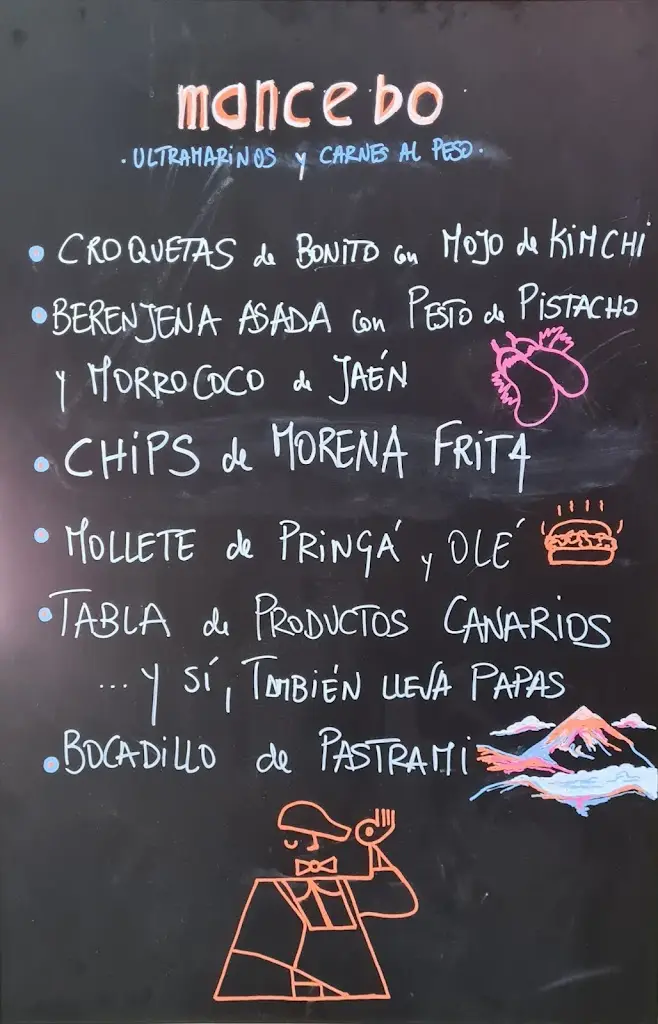 mancebo
· ULTRAMARINOS y CARNES AL PESO ·
• CROQUETAS de BONITO con MOJO de KIMCHI
• BERENJENA ASADA con PESTO de PISTACHO
y MORROCOCO de JAÉN
• CHIPS de MORENA FRITA
• MOLLETE de PRINGÁ y OLÉ
• TABLA de PRODUCTOS CANARIOS
... y SÍ, TAMBIÉN LLEVA PAPAS
• BOCADILLO de PASTRAMI